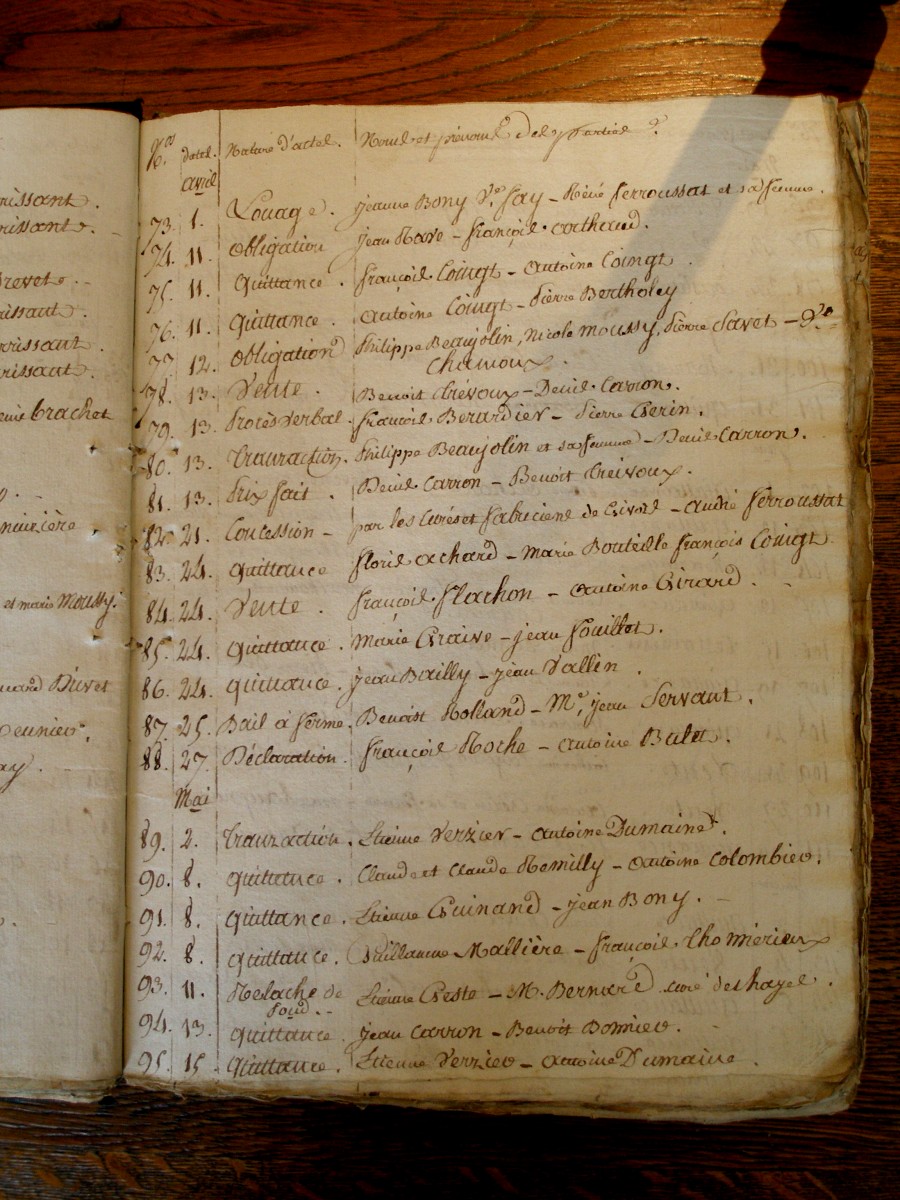 rissant.
rissant.
Brevet.
rissant.
rissant.
rissant.
Brachet
et marie Moussy.
Divet
N.os dates. Nature d'actes. Noms et prénoms des parties.
avril
73. 1. Louage. jeanne Bony V.e fay - Réné ferroussat et sa femme.
74. 11. Obligation jean - françois
75. 11. Quittance. françois Coingt - antoine Coingt.
76. 11. Quittance. antoine Coingt - pierre Bertholey
77. 12. Obligation philippe Beaujolin, Nicole moussy, pierre Savet - V.ve
Chamoux.
78. 13. Vente. Benoit Trévoux - Denis Carron.
79. 13. Procès verbal. françois Berardier - pierre
80. 13. Transaction. philippe Beaujolin et sa femme - Denis Carron.
81. 13. Prix fait. Denis Carron - Benoit Trévoux.
82. 21. Concession - par les Curé et fabriciens de - andré ferroussat
83. 24. quittance floris achard - Marie Bouteille françois Coingt
84. 24. Vente. françois flachon - antoine Girard.
85. 24. quittance. Marie - jean fouillet.
86. 24. quittance. jean Bailly - jean Vallin
87. 25. Bail à ferme. Benoist Rolland - M.e jean Servant.
88. 27. Déclaration. françois Roche - antoine
Mai
89. 2. transaction. Etienne Verzier - antoine Dumaine.
90. 8. quittance. Claude et Claude Remilly - antoine Colombier.
91. 8. quittance. Etienne Guinand - jean Bony.
92. 8. quittance. Guillaume Mallière - françois
93. 11. Relache de Etienne - M. Bernard curé des hayes.
fond.
94. 13. quittance. jean Carron - Benoit Bonnier.
95. 15. quittance. Etienne Verzier - antoine Dumaine.